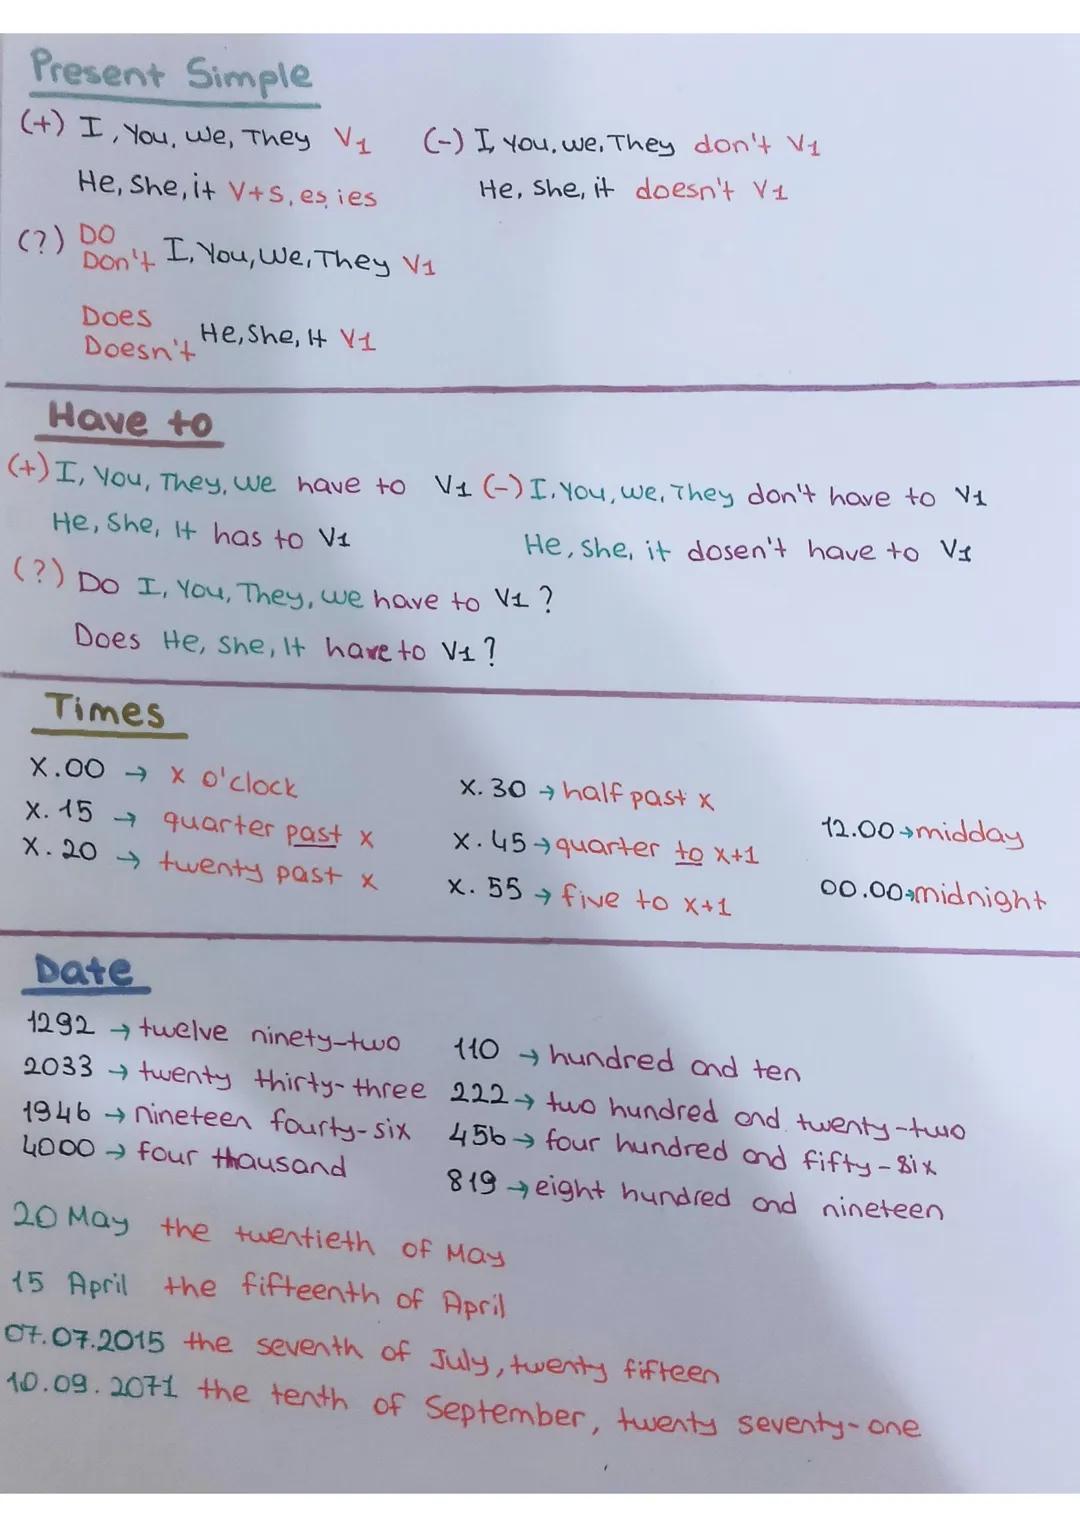 Present Simple
(+) I, You, We, They V1 (-) I, You, we, They don't V1
He, She, it V+s, es, ies He, She, it doesn't V1
(?) DO
Don't I, You, We, They V1
Does
Doesn't He, She, It V1
Have to
(+) I, You, They, We have to V1 (-) I, You, we, They don't have to V1
He, She, It has to V1 He, She, it dosen't have to V1
(?) Do I, You, They, we have to V1 ?
Does He, She, It have to V1 ?
Times
X.00 → x o'clock X.30 → half past x
X.15 → quarter past x X.45 → quarter to x+1 12.00→midday
X.20 → twenty past x X.55 → five to x+1 00.00→midnight
Date
1292 → twelve ninety-two 110 → hundred and ten
2033 → twenty thirty-three 222 → two hundred and twenty-two
1946 → nineteen fourty-six 456 → four hundred and fifty-six
4000 → four thausand 819 → eight hundred and nineteen
20 May the twentieth of May
15 April the fifteenth of April
07.07.2015 the seventh of July, twenty fifteen
10.09.2071 the tenth of September, twenty seventy-one